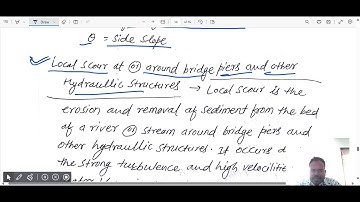 θ = side slope
Local scour at or around bridge piers and other
Hydraullic structures → Local scour is the
erosion and removal of sediment from the bed
of a river or stream around bridge piers and
other hydraullic structures. It occurs d
the strong turbulence and high velocitie